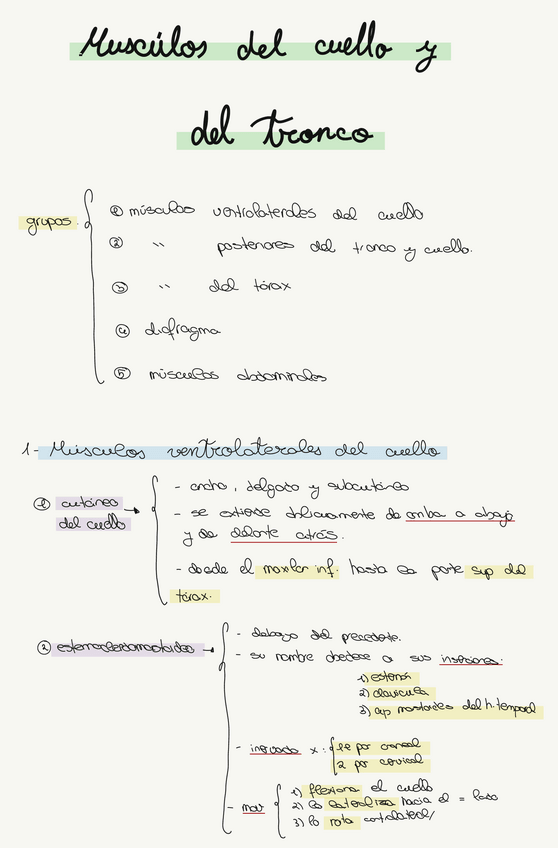 Muscúlos del cuello y
del tronco
grupos
① músculos ventrolaterales del cuello
② " posteriores del tronco y cuello.
③ " del tórax
④ diafragma
⑤ músculos abdominales
1- Músculos ventrolaterales del cuello
① cutáneo
del cuello
- ancho, delgado y subcutáneo
- se extiende oblicuamente de arriba a abajo
y de delante atrás.
- desde el maxilar inf. hasta la parte sup del
tórax.
② esternocleidomastoideo
- debajo del precedente.
- su nombre obedece a sus inserciones:
1) esternón
2) clavícula
3) ap mastoides del h. temporal
- inervado x:
11º par craneal
2 par cervical
- mov
1) flexiona el cuello
2) lo lateraliza hacia el = lado
3) lo rota contralateral/